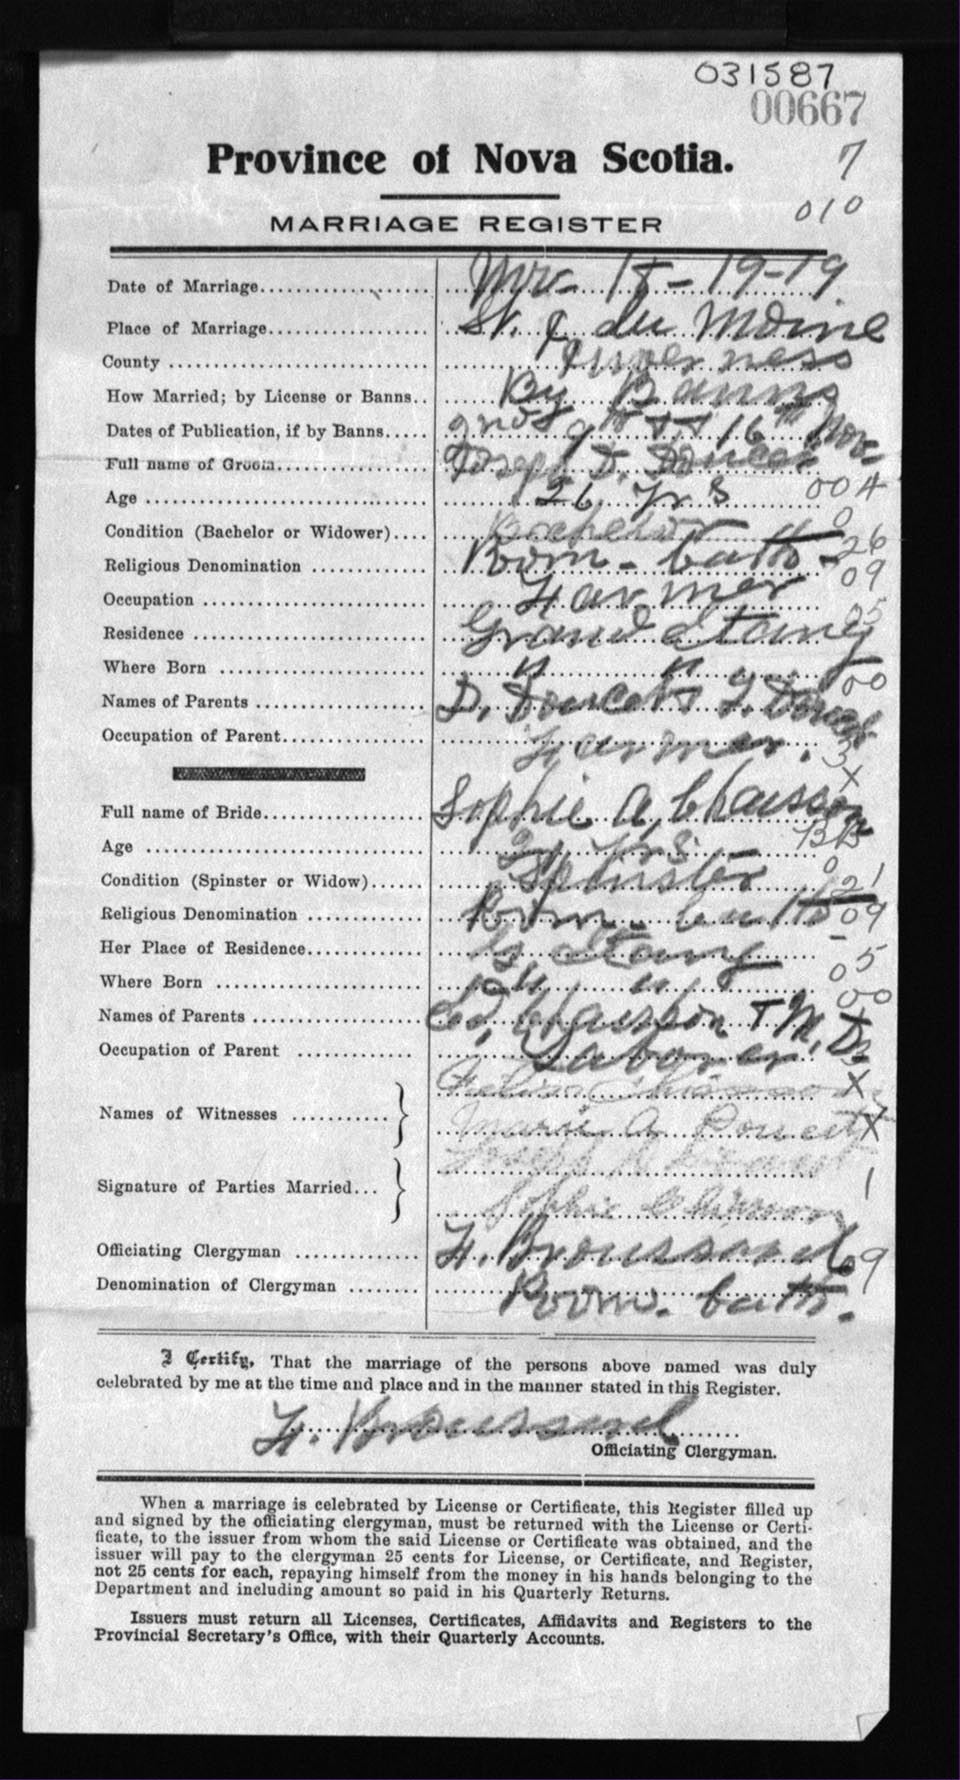 031587
00667
Province of Nova Scotia.
7
010
MARRIAGE REGISTER
Date of Marriage Nov- 18-19-19
Place of Marriage St. J. du Moine
County Inverness
How Married; by License or Banns By Banns
Dates of Publication, if by Banns 2nd 9th + 16th Nov.
Full name of Groom Joseph D. Doucet
004
Age 26 yrs
0
Condition (Bachelor or Widower) Bachelor
26
Religious Denomination Rom- Cath-
09
Occupation Farmer
05
Residence Grand Etang
Where Born " "
00
Names of Parents D. Doucet + F. Doucet
Occupation of Parent Farmer.
3
X
Full name of Bride Sophie A. Chaisson
BB
Age 21 yrs
0
Condition (Spinster or Widow) Spinster
21
Religious Denomination Rom- Cath-
09
Her Place of Residence G Etang
05
Where Born " "
00
Names of Parents Ed. Chaisson + M. D.
Occupation of Parent Laborer
X
Names of Witnesses Chiasson
Marie A. Doucet
X
Signature of Parties Married Joseph D Doucet
1
Sophie Chiasson
Officiating Clergyman H. Broussard
09
Denomination of Clergyman Rom- Cath.
I Certify, That the marriage of the persons above named was duly
celebrated by me at the time and place and in the manner stated in this Register.
H. Broussard
Officiating Clergyman.
When a marriage is celebrated by License or Certificate, this Register filled up
and signed by the officiating clergyman, must be returned with the License or Certi-
ficate, to the issuer from whom the said License or Certificate was obtained, and the
issuer will pay to the clergyman 25 cents for License, or Certificate, and Register,
not 25 cents for each, repaying himself from the money in his hands belonging to the
Department and including amount so paid in his Quarterly Returns.
Issuers must return all Licenses, Certificates, Affidavits and Registers to the
Provincial Secretary's Office, with their Quarterly Accounts.